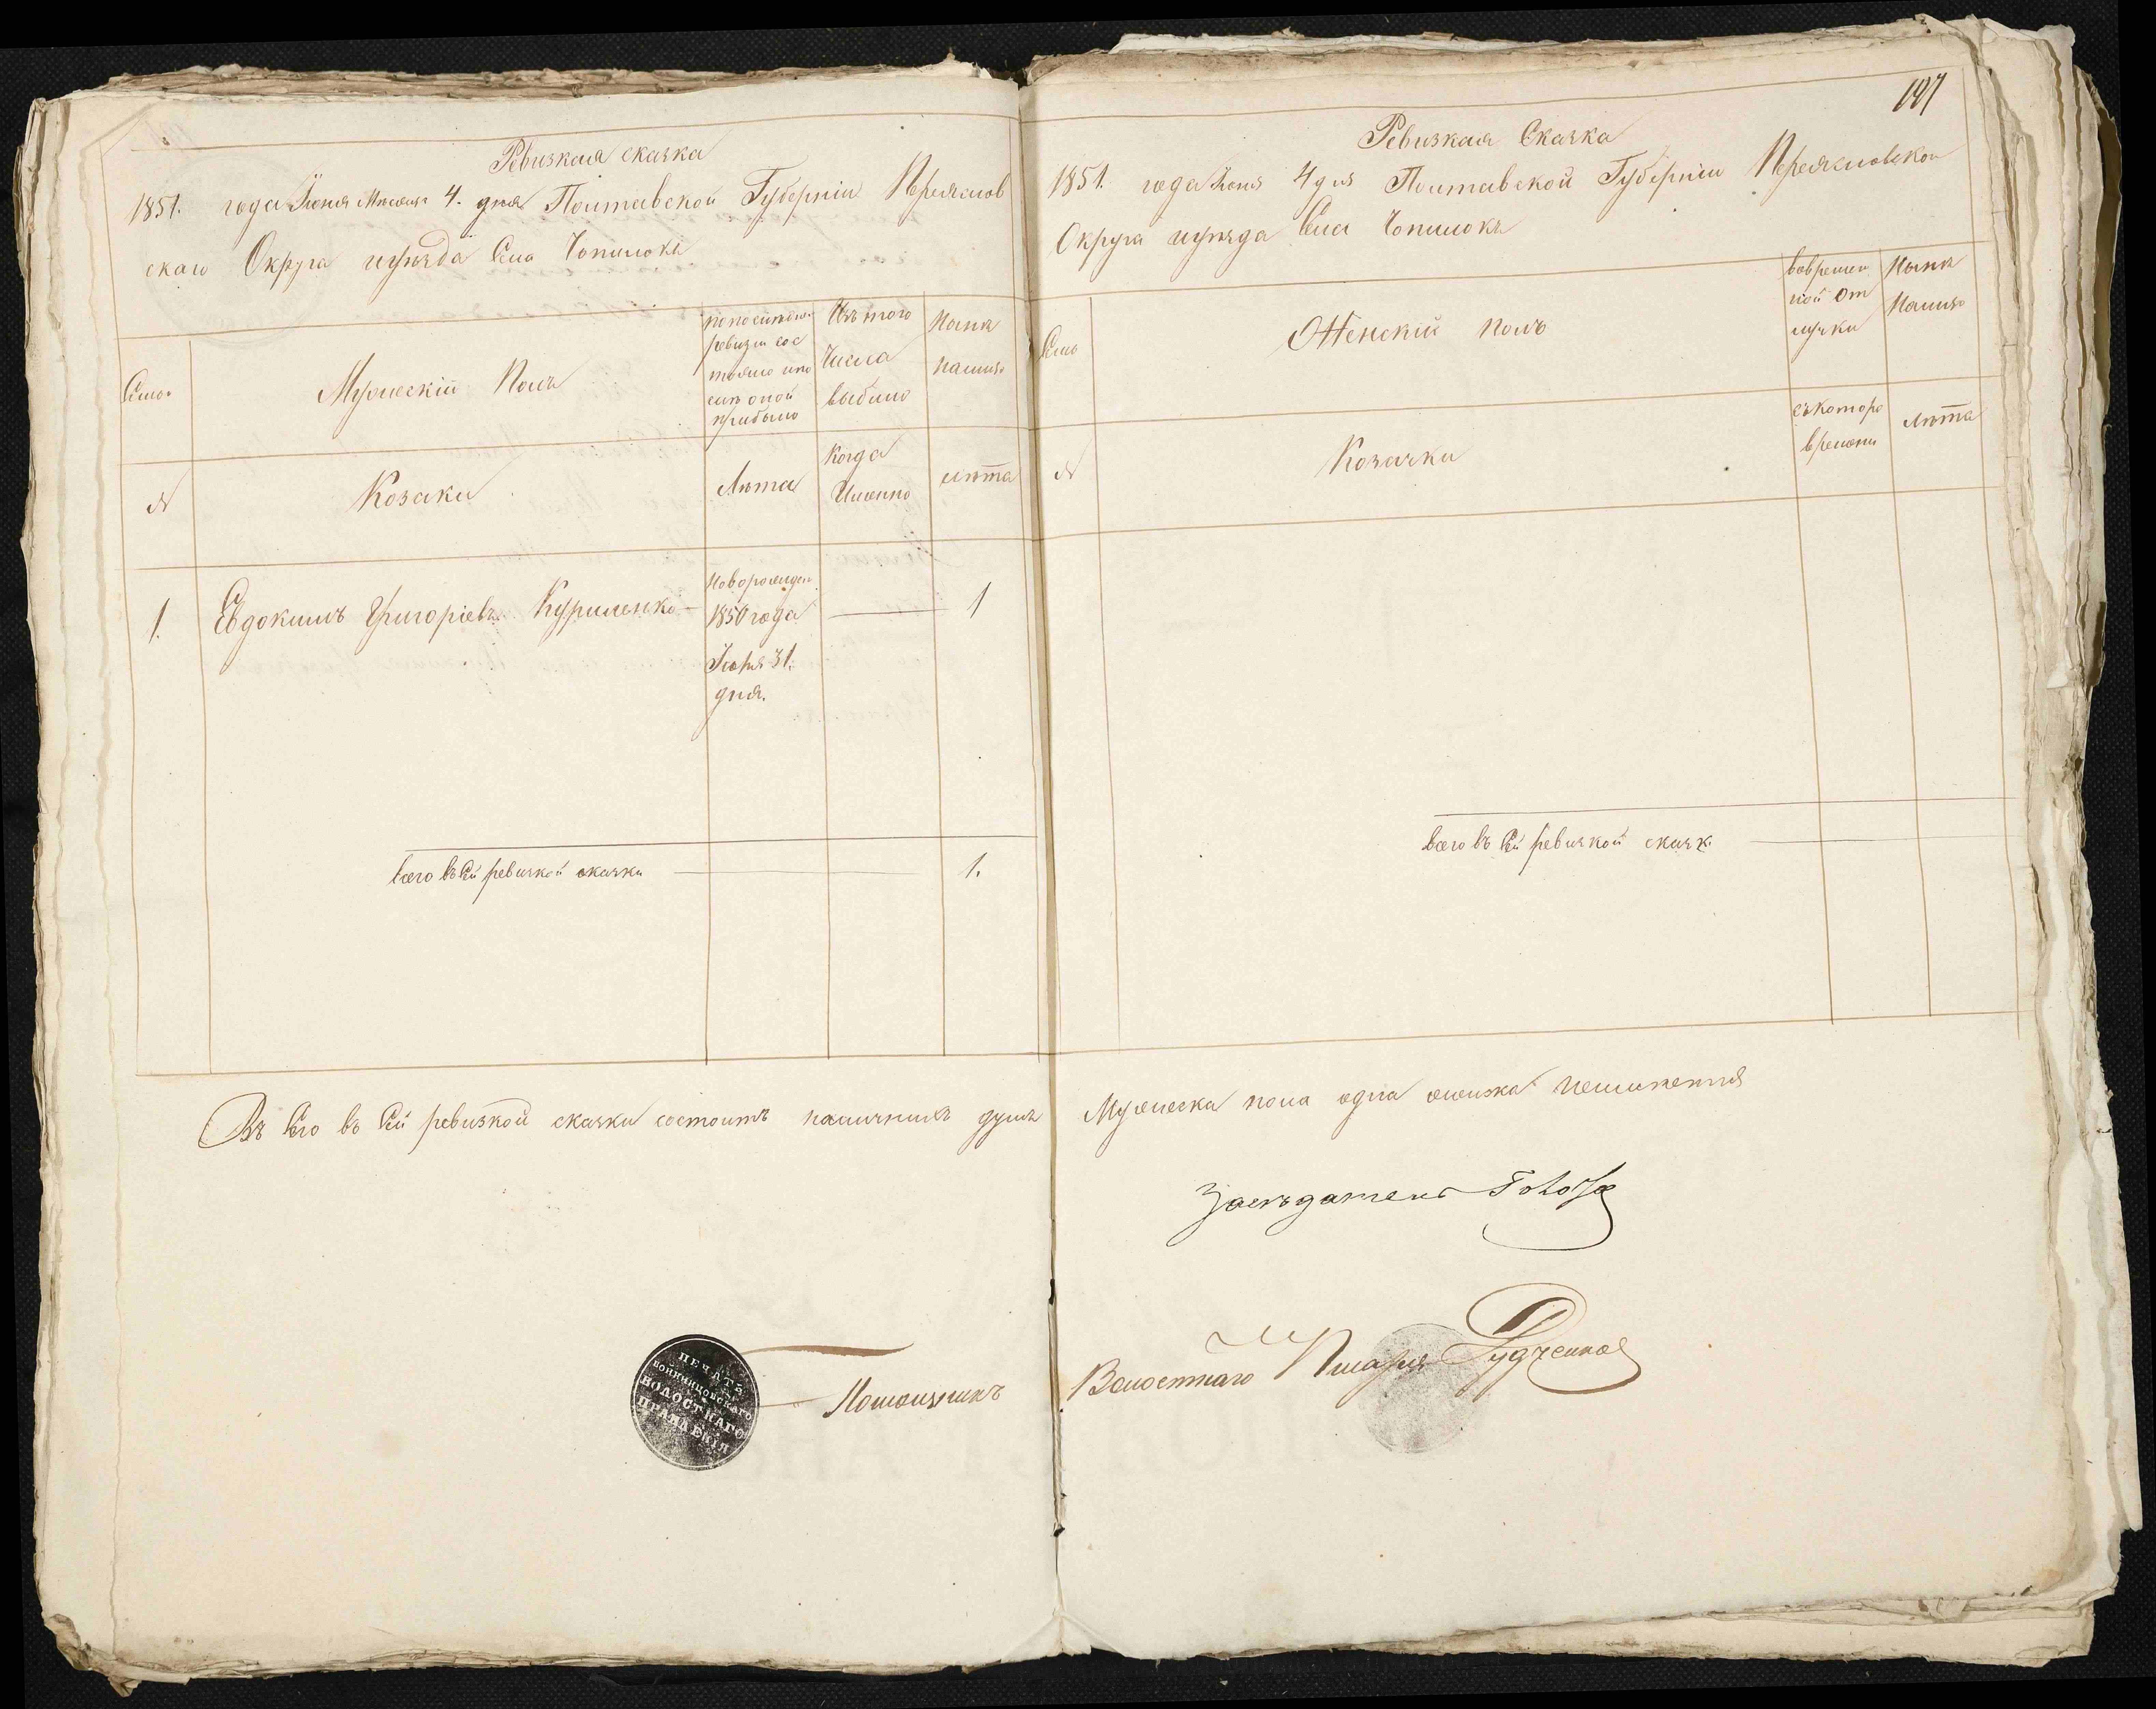 Ревизкая сказка
1851. года Іюня Месяца 4. дня Полтавской Губерніи Переяслов
скаго Округа иуезда Села Чопилокъ
Семьи
Мужескій Полъ
попоследней
ревизіи сос
тояло ипо
сле оной
прибыло
Изъ того
Числа
выбыло
Ныне
налицо
№
Козаки
Лета
Когда
Именно
лета
1.
Евдокимъ Григоріевъ Куриленко
Новорожден
1850 года
31.
дня.
1
всего въ сей ревизкой сказки
1.
197
Ревизкая Сказка
1851. года Іюня 4 дня Полтавской Губерніи Переясловской
Округа иуезда Села Чопилокъ
Семьи
Женскій полъ
вовремен
ной от
лучки
Ныне
Налицо
№
Козачки
съкоторо
времени
лета
всего въ сей ревизкой сказк.
Въ сего въ сей ревизкой сказки состоитъ наличныхъ душъ Мужеска пола одна женска
Заседатель
Помощникъ Волостнаго Писаря Рудченко
ПЕЧАТЬ
ВОЛОСТНАГО
ПРАВЛЕНІЯ